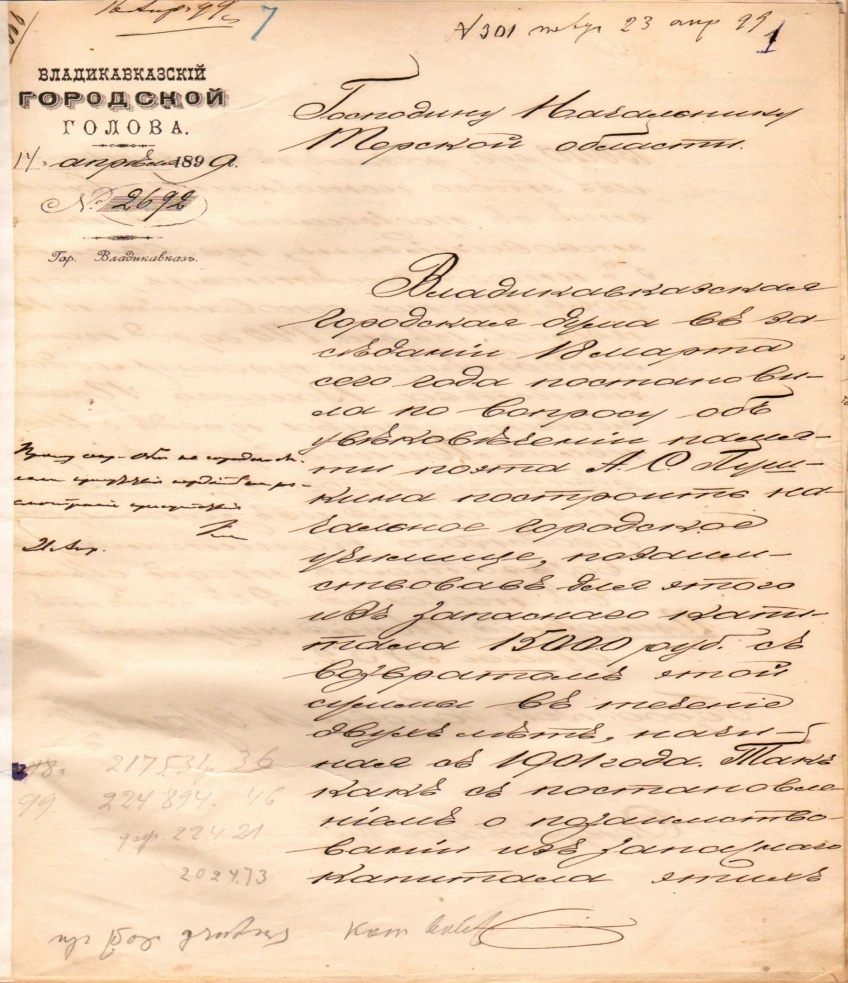 16 Апр. 99
7
N 301
23 апр 99
1
ВЛАДИКАВКАЗСКІЙ
ГОРОДСКОЙ
ГОЛОВА.
14 апрѣля 1899.
№ 2692
Гор. Владикавказъ.
Господину Начальнику
Терской области.
Владикавказская
городская дума въ за-
сѣданіи 18 марта
сего года постанови-
ла по вопросу объ
увѣковѣченіи памя-
ти поэта А. С. Пуш-
кина построить на-
чальное городское
училище, позаим-
ствовавъ для этого
изъ запаснаго капи-
тала 15000 руб. съ
возвратомъ этой
суммы въ теченіе
двухъ лѣтъ, начи-
ная съ 1901 года. Такъ
какъ съ постановле-
ніемъ о позаимство-
ваніи изъ запаснаго
капитала этихъ
21 Апр.
98.
99 224 894. 46
2241 21
202473